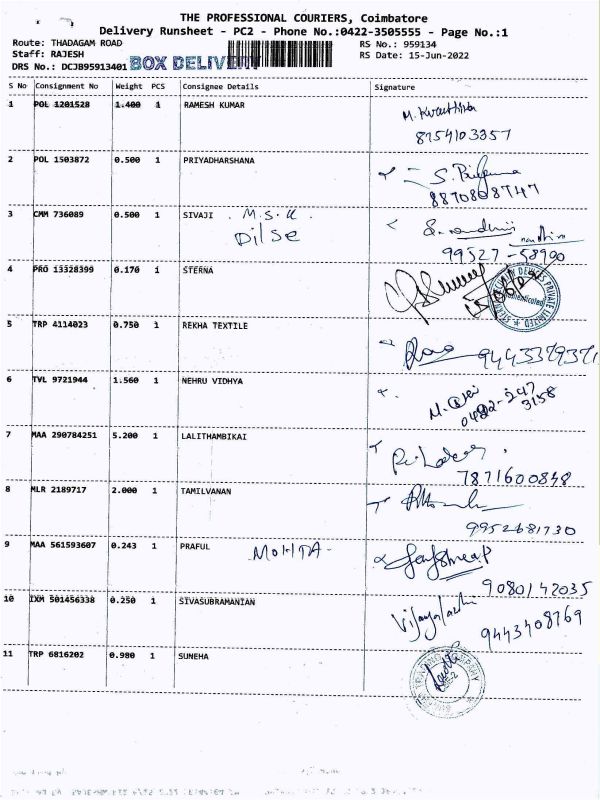 THE PROFESSIONAL COURIERS, Coimbatore
Delivery Runsheet - PC2 - Phone No.:0422-3505555 - Page No.:1
Route: THADAGAM ROAD RS No.: 959134
Staff: RAJESH RS Date: 15-Jun-2022
DRS No.: DCJB95913401 BOX DELIVERY
S No Consignment No Weight PCS Consignee Details Signature
1 POL 1201528 1.400 1 RAMESH KUMAR
8754103357
2 POL 1503872 0.500 1 PRIYADHARSHANA
8870808747
3 CMM 736089 0.500 1 SIVAJI M.S.K.
Dilse
99527-58900
4 PRO 13328399 0.170 1 STERNA
5 TRP 4114023 0.750 1 REKHA TEXTILE
9443379371
6 TVL 9721944 1.560 1 NEHRU VIDHYA
7 MAA 290784251 5.200 1 LALITHAMBIKAI
7871600848
8 MLR 2189717 2.000 1 TAMILVANAN
9952681730
9 MAA 561593607 0.243 1 PRAFUL MOHTA
9080142035
10 IXM 501456338 0.250 1 SIVASUBRAMANIAN
Vijayalakshi
9443408769
11 TRP 6816202 0.980 1 SUNEHA